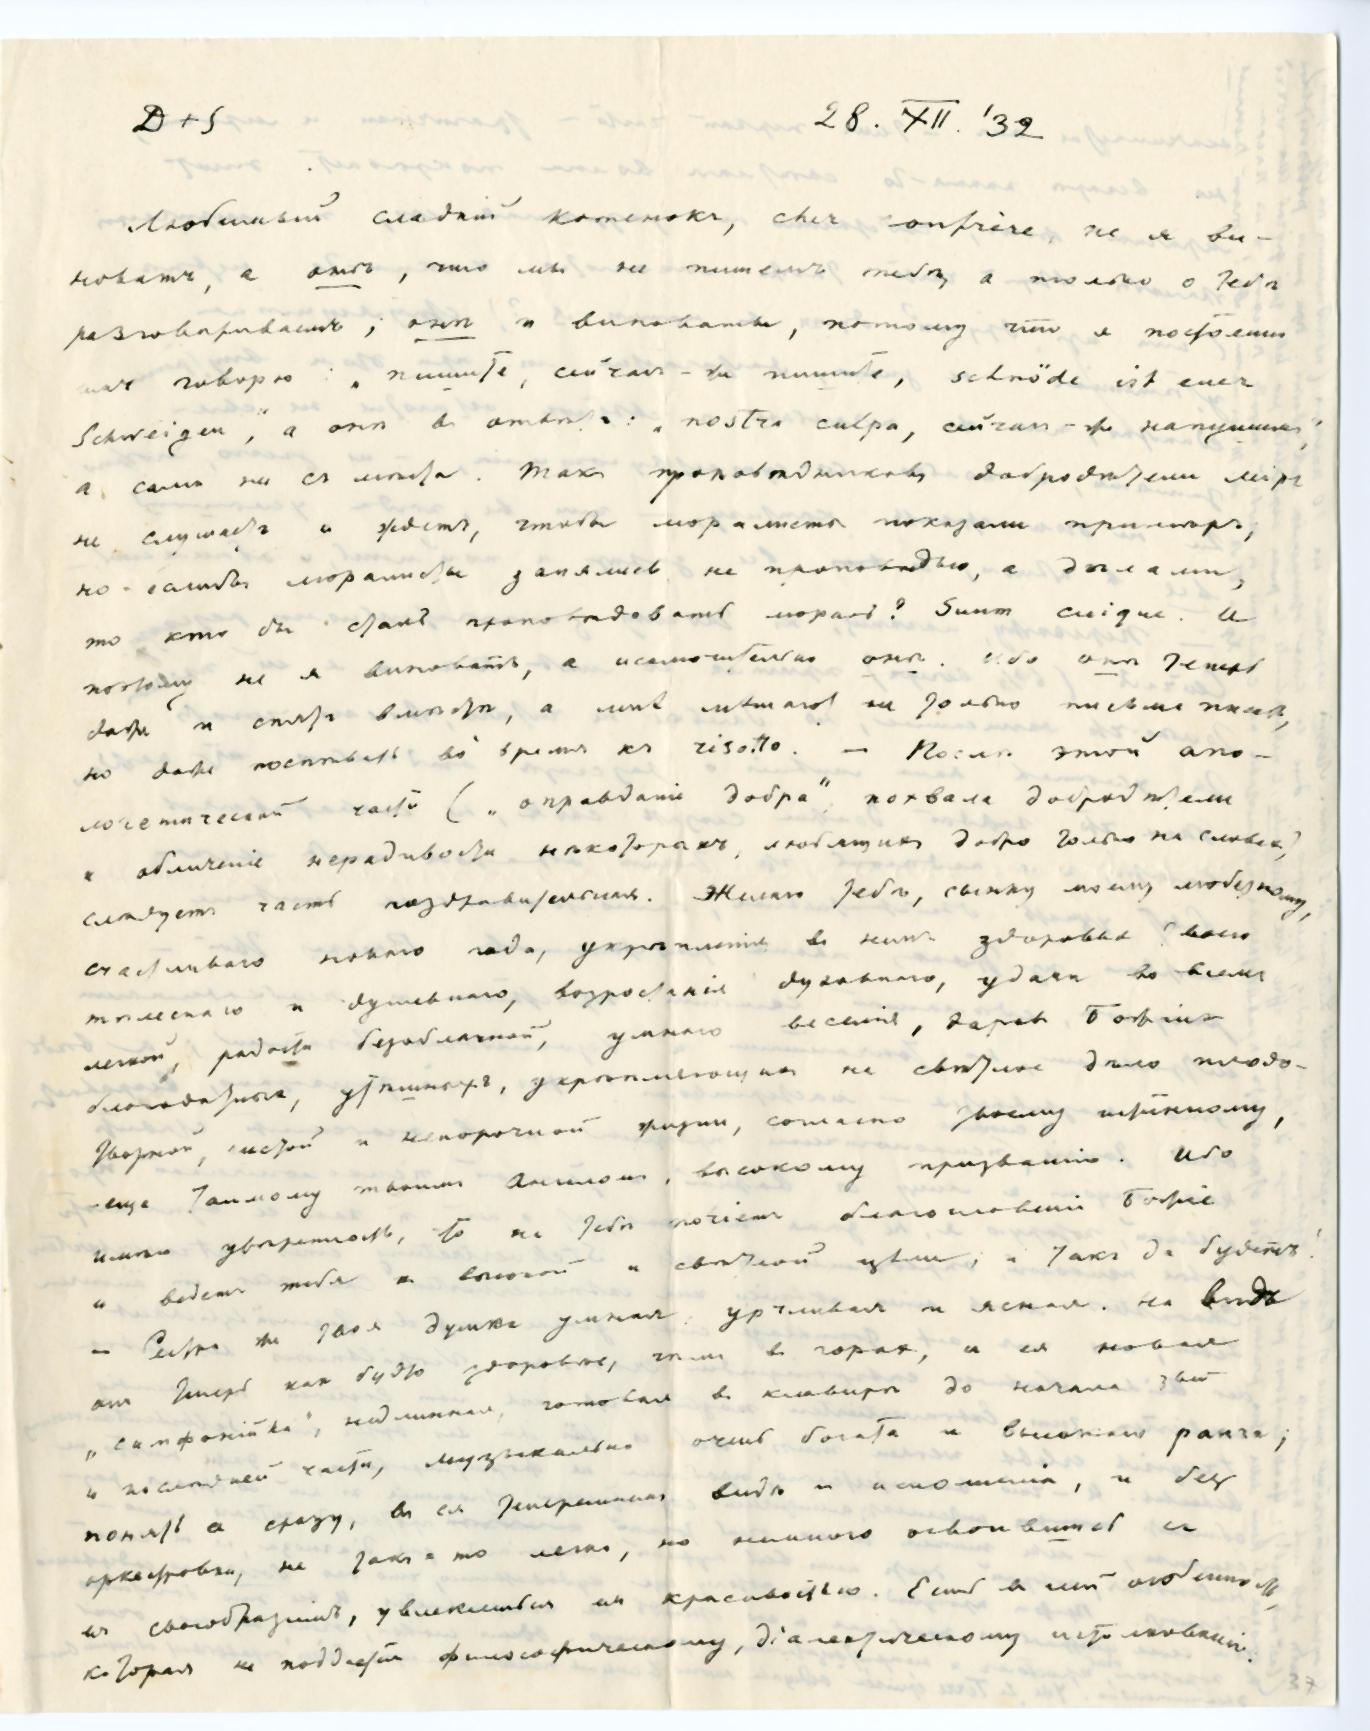 D+S 28. XII. '32
Любимый сладкій котенокъ, cher confrère, не я ви-
новатъ, а онѣ, что мы не пишемъ тебѣ, а только о тебѣ
разговариваемъ; онѣ и виноваты, потому что я постоянно
имъ говорю: „пишите, сейчасъ-же пишите, schnöde ist euer
Schweigen“, а онѣ въ отвѣтъ: „nostra culpa, сейчасъ-же напишемъ“,
а сами ни съ мѣста. Такъ проповѣдниковъ добродѣтели міръ
не слушаетъ и ждетъ, чтобы моралисты показали примѣръ,
но если бы моралисты занялись не проповѣдью, а дѣлами,
то кто бы сталъ проповѣдовать мораль? Suum cuique. И
поэтому не я виноватъ, а исключительно онѣ. Ибо онѣ теперь
даже и спятъ вмѣстѣ, а мнѣ мѣшаютъ не только письма писать,
но даже поспѣвать во время къ risotto. — Послѣ этой апо-
логетической части („оправданіе добра“, похвала добродѣтели
и обличеніе нерадивости нѣкоторыхъ, любящихъ добро только на словахъ)
слѣдуетъ часть поздравительная. Желаю тебѣ, сынку моему любезному,
счастливаго новаго года, укрѣпленія въ немъ здоровья твоего
тѣлеснаго и душевнаго, возростанія духовнаго, удачи во всемъ
легкой, радости безоблачной, умнаго веселія, даровъ Божіихъ
благодатныхъ, утѣшныхъ, укрѣпляющихъ на свѣтлое дѣло плодо-
творной, чистой и непорочной жизни, согласно твоему истинному,
еще таимому твоимъ Ангеломъ, высокому призванію. Ибо
имѣю увѣренность, что на тебѣ почіетъ благословеніе Божіе
и ведетъ тебя къ высокой и свѣтлой цѣли; и такъ да будетъ!
— Сестра же твоя душка умная, урчливая и ясная. На видъ
она теперь какъ будто здоровѣе, чѣмъ въ горахъ, и ея новая
„симфонійка“, недлинная, готовая въ клавирѣ до начала 3ьей
и послѣдней части, музыкально очень богата и высокаго ранга;
понять ее сразу, въ ея теперешнемъ видѣ и исполненіи, и безъ
оркестровки, не такъ-то легко, но немного освоившись съ
ея своеобразіемъ, увлекаешься ея красивостью. Есть въ ней особенность,
которая не поддается философическому, діалектическому истолкованію.
37